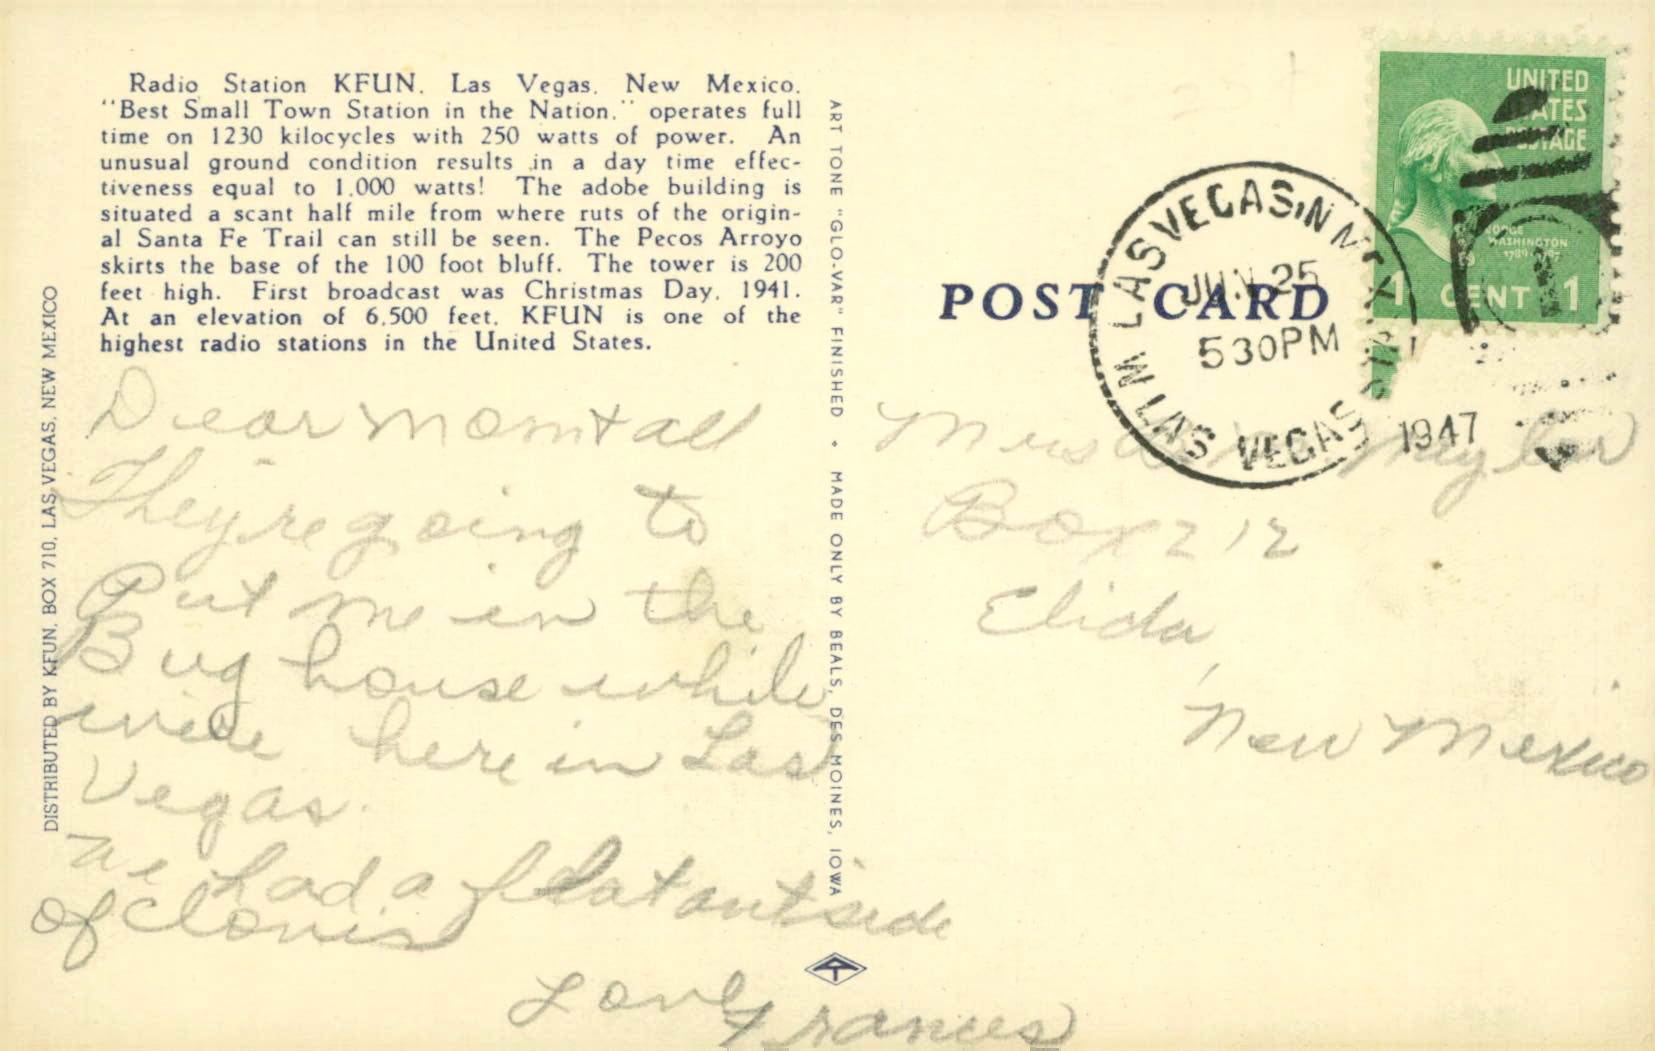 Radio Station KFUN, Las Vegas, New Mexico.
"Best Small Town Station in the Nation," operates full
time on 1230 kilocycles with 250 watts of power. An
unusual ground condition results in a day time effec-
tiveness equal to 1,000 watts! The adobe building is
situated a scant half mile from where ruts of the origin-
al Santa Fe Trail can still be seen. The Pecos Arroyo
skirts the base of the 100 foot bluff. The tower is 200
feet high. First broadcast was Christmas Day, 1941.
At an elevation of 6,500 feet, KFUN is one of the
highest radio stations in the United States.
DISTRIBUTED BY KFUN, BOX 710, LAS VEGAS, NEW MEXICO
Dear Mom + all
They're going to
Put me in the
Bug house while
here in Las
Vegas.
We had a flat outside
of Clovis
Love
Frances
ART TONE "GLO-VAR" FINISHED • MADE ONLY BY BEALS, DES MOINES, IOWA
POST CARD
UNITED
STATES
POSTAGE
GEORGE
WASHINGTON
1 CENT 1
LAS VEGAS, N M
LAS VEGAS
JUN 25
530PM
1947
Mrs
Box 212
Elida,
New Mexico